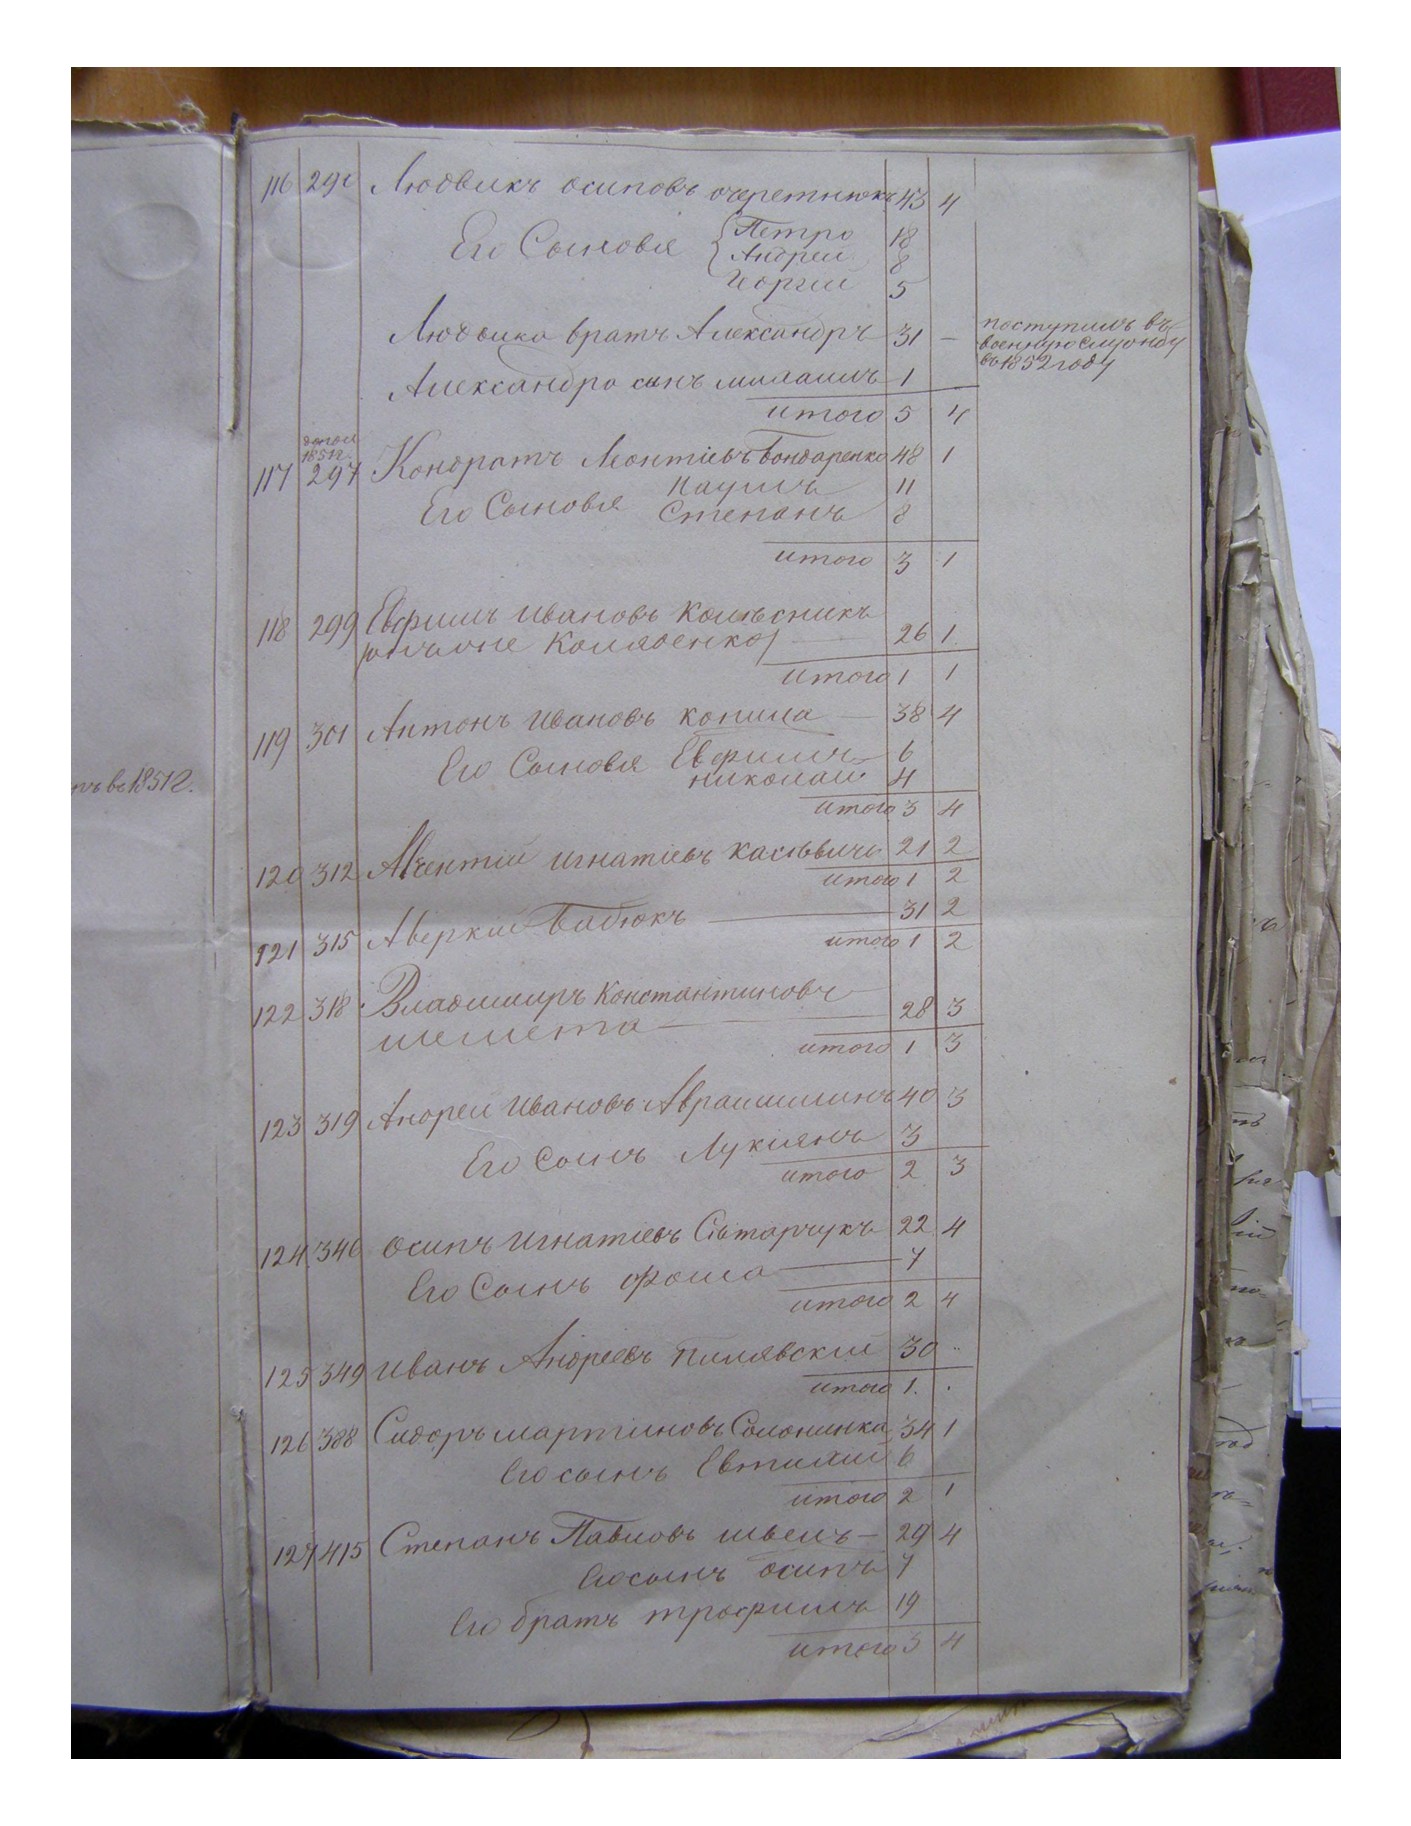 116 Людвикъ осиповъ очеретнюкъ 43 4
Его Сыновья { Петро 18
Андрей 8
Георгий 5
Людвика братъ Александръ 31 — поступилъ въ
военную службу
въ 1852 году
Александра сынъ михаилъ 1
итого 5 4
1851г.
117 297 Кондратъ Леонтіевъ бондаренко 48 1
Наумъ 11
Его Сыновья Степанъ 8
итого 3 1
118 299 Евфимъ Ивановъ Колѣсникъ
Колябенко) — 26 1
итого 1 1
119 301 Антонъ Ивановъ копила — 38 4
Его Сыновья Евфимъ 6
николай 4
въ 1851г.
итого 3 4
120 312 Авксентій игнатіевъ 21 2
итого 1 2
121 315 Аверкій Бабюкъ — 31 2
итого 1 2
122 318 Владимиръ Константиновъ
шемета — 28 3
итого 1 3
123 319 Андрей Ивановъ Авраимишинъ 40 3
Его Сынъ Лукиянъ 3
итого 2 3
124 346 Осипъ Игнатіевъ Сытарчукъ 22 4
Его Сынъ фома — 7
итого 2 4
125 349 Иванъ Андреевъ пилявскій 30 ..
итого 1. .
126 388 Сидоръ мартиновъ Солонинка 34 1
Его сынъ Евтихий 6
итого 2 1
127 415 Степанъ Павловъ швецъ — 29 4
Его сынъ осипъ 7
Его братъ трофимъ 19
итого 3 4